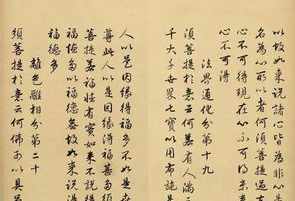 以故如來說諸心皆為非心是
名為心所以者何須菩提過去
心不可得現在心不可得未來
心不可得
法界通化分第十九
須菩提於意云何若有人滿三
千大千世界七寶以用布施是
人以是因緣得福多不如是世
尊此人以是因緣得福甚多須
菩提若福德有實如來不說得
福德多以福德無故如來說得
福德多
離色離相分第二十
須菩提於意云何佛可以具足